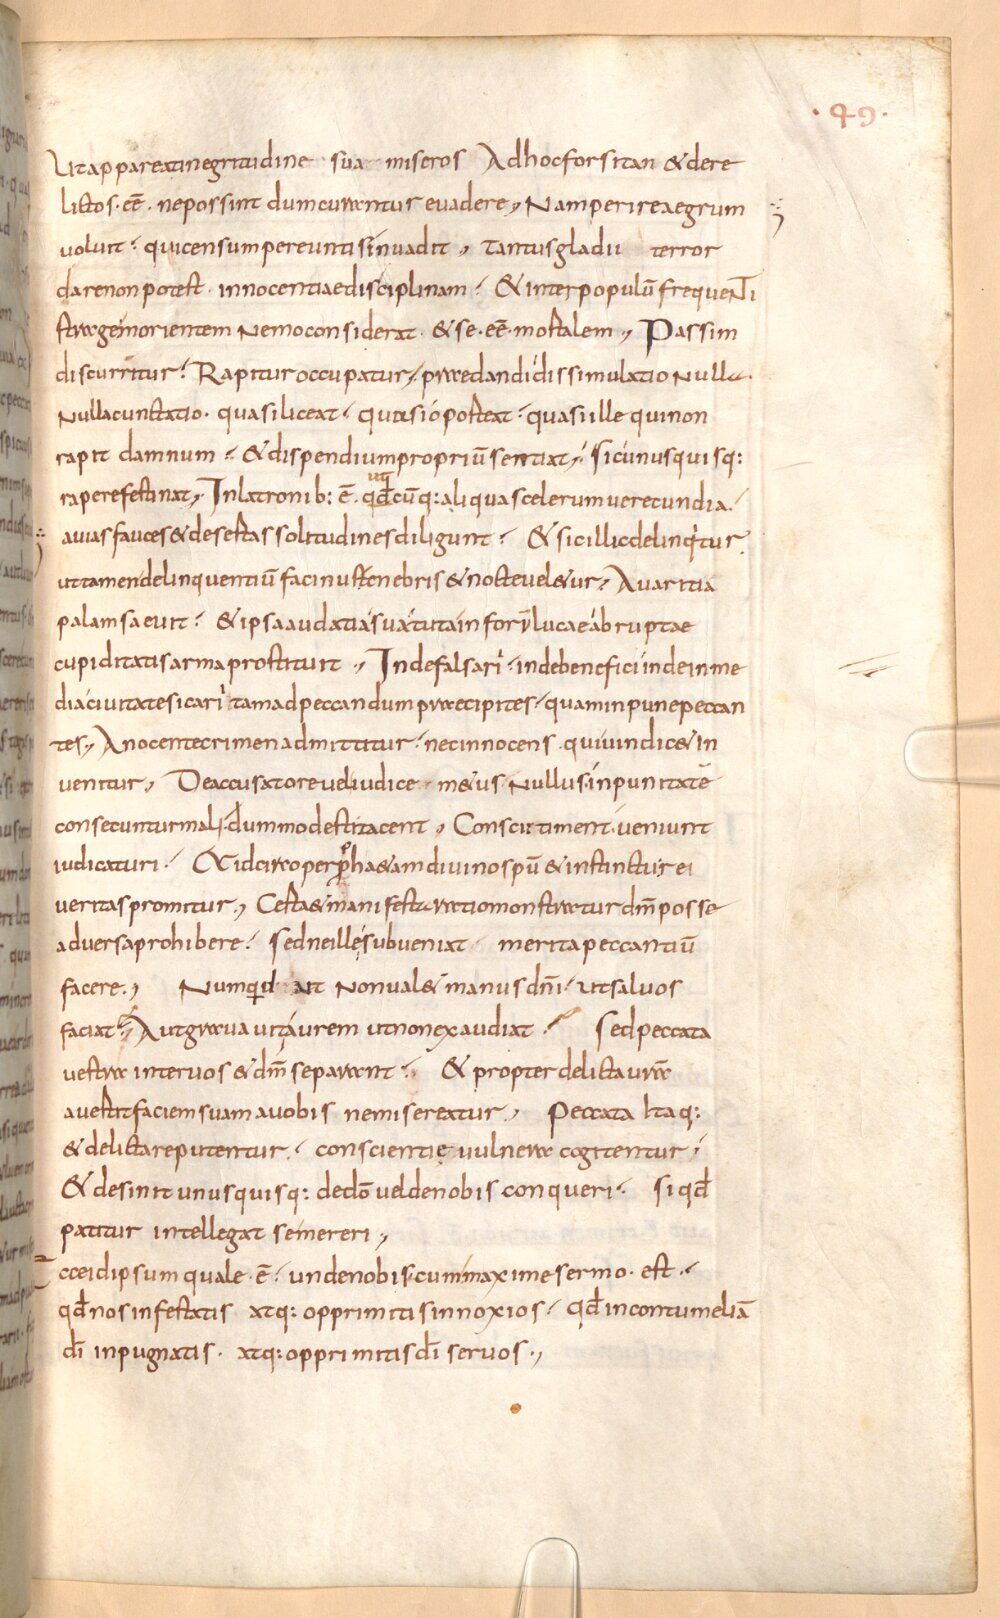 .49.
Ut appareat in egritudine sua miseros Ad hoc forsitan & dere
lictos · eē · ne possint dum curantur evadere, Nam perire aegrum
voluit · qui censum pereuntis invadit, tantus gladii terror
dare non potest · innocentiae disciplinam · & inter populū frequenti
strage morientem Nemo considerat · & se · eē · mortalem, Passim
discurritur · Rapitur occupatur, praedandi dissimulatio Nulla ·
Nulla cunctatio · quasi liceat · quasi oporteat · quasi ille qui non
rapit damnum · & dispendium propriū sentiat, sic unusquisq:
rapere festinat, In latronib: ē · utq; qđcūq: aliqua scelerum verecundia ·
avias fauces & desertas solitudines diligunt · & sic illic delinqitur
ut tamen delinquentiū facinus tenebris & nocte vel&ur, Avaritia
palam saevit · & ipsa audatia sua tuta in fori luce abruptae
cupiditatis arma prostituit, Inde falsari · inde benefici inde in me
dia civitate sicari tam ad peccandum praecipites · quam inpune peccan
tes, A nocente crimen admittitur · nec innocens qui vindic& in
venitur, De accusatore vel iudice m&us Nullus · inpunitatē
consecuntur mali · dum modesti tacent, Conscii timent · veniunt
iudicaturi · & idcirco per proph&am divino spū & instinctu rei
veritas promitur, Certa & manifesta ratio monstratur dm̄ posse
adversa prohibere · sed ne ille subveniat merita peccantiū
facere, Numqid ait Non val& manus dnī · ut salvos
faciat, Aut gravavit aurem ut non exaudiat · sed peccata
vestra inter vos & dm̄ separant · & propter delicta vrā
avertit faciem suam a vobis ne misereatur, Peccata Itaq:
& delicta reputentur · conscientię vulnera cogitentur ·
& desinit unusquisq: de dō vel de nobis conqueri · si qđ
patitur intellegat se mereri,
Ecce id ipsum quale · ē · unde nobis cum maxime sermo · est ·
qđ nos infestatis atq: opprimitis innoxios · qđ in contumeliā
dī inpugnatis · atq: opprimitis dī servos,